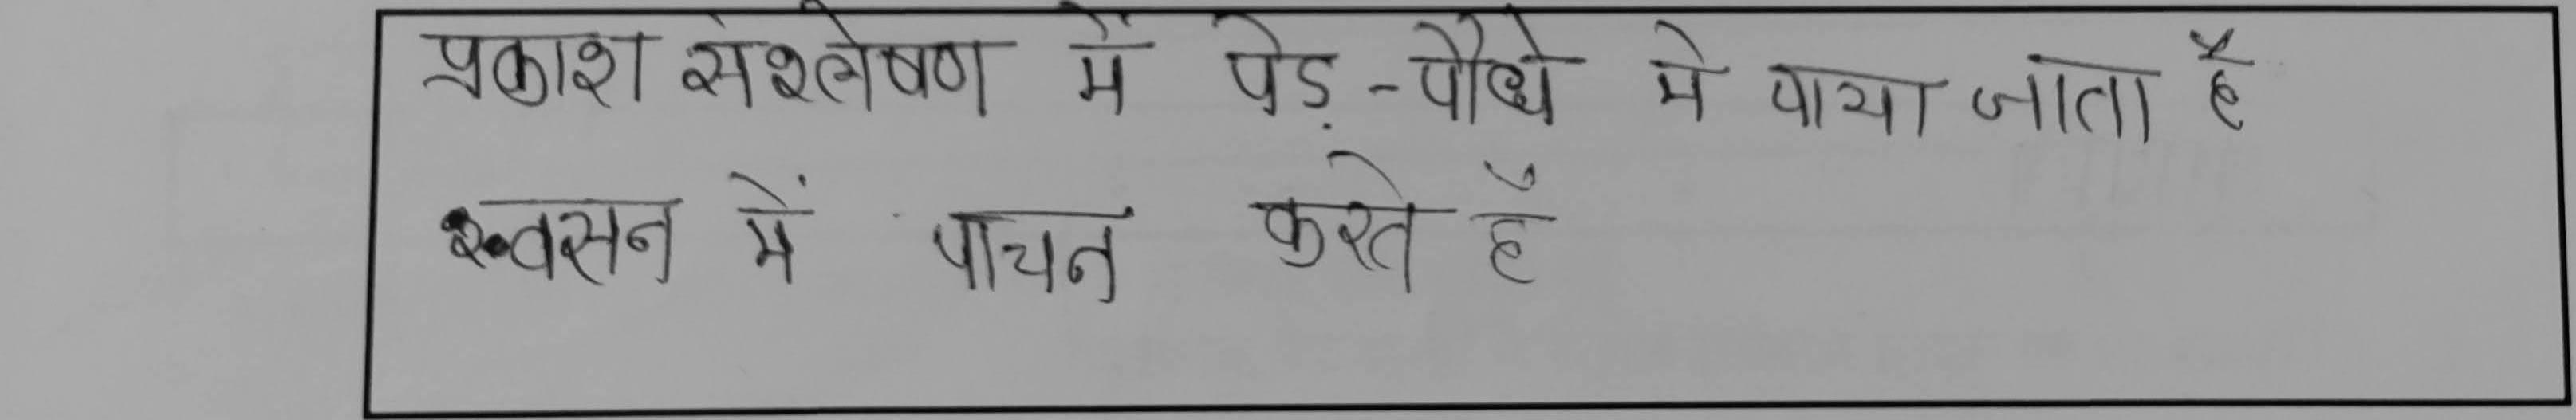 प्रकाश संश्लेषण में पेड़ -पौधे मे पाया जाता है
श्वसन में पाचन करते हैं